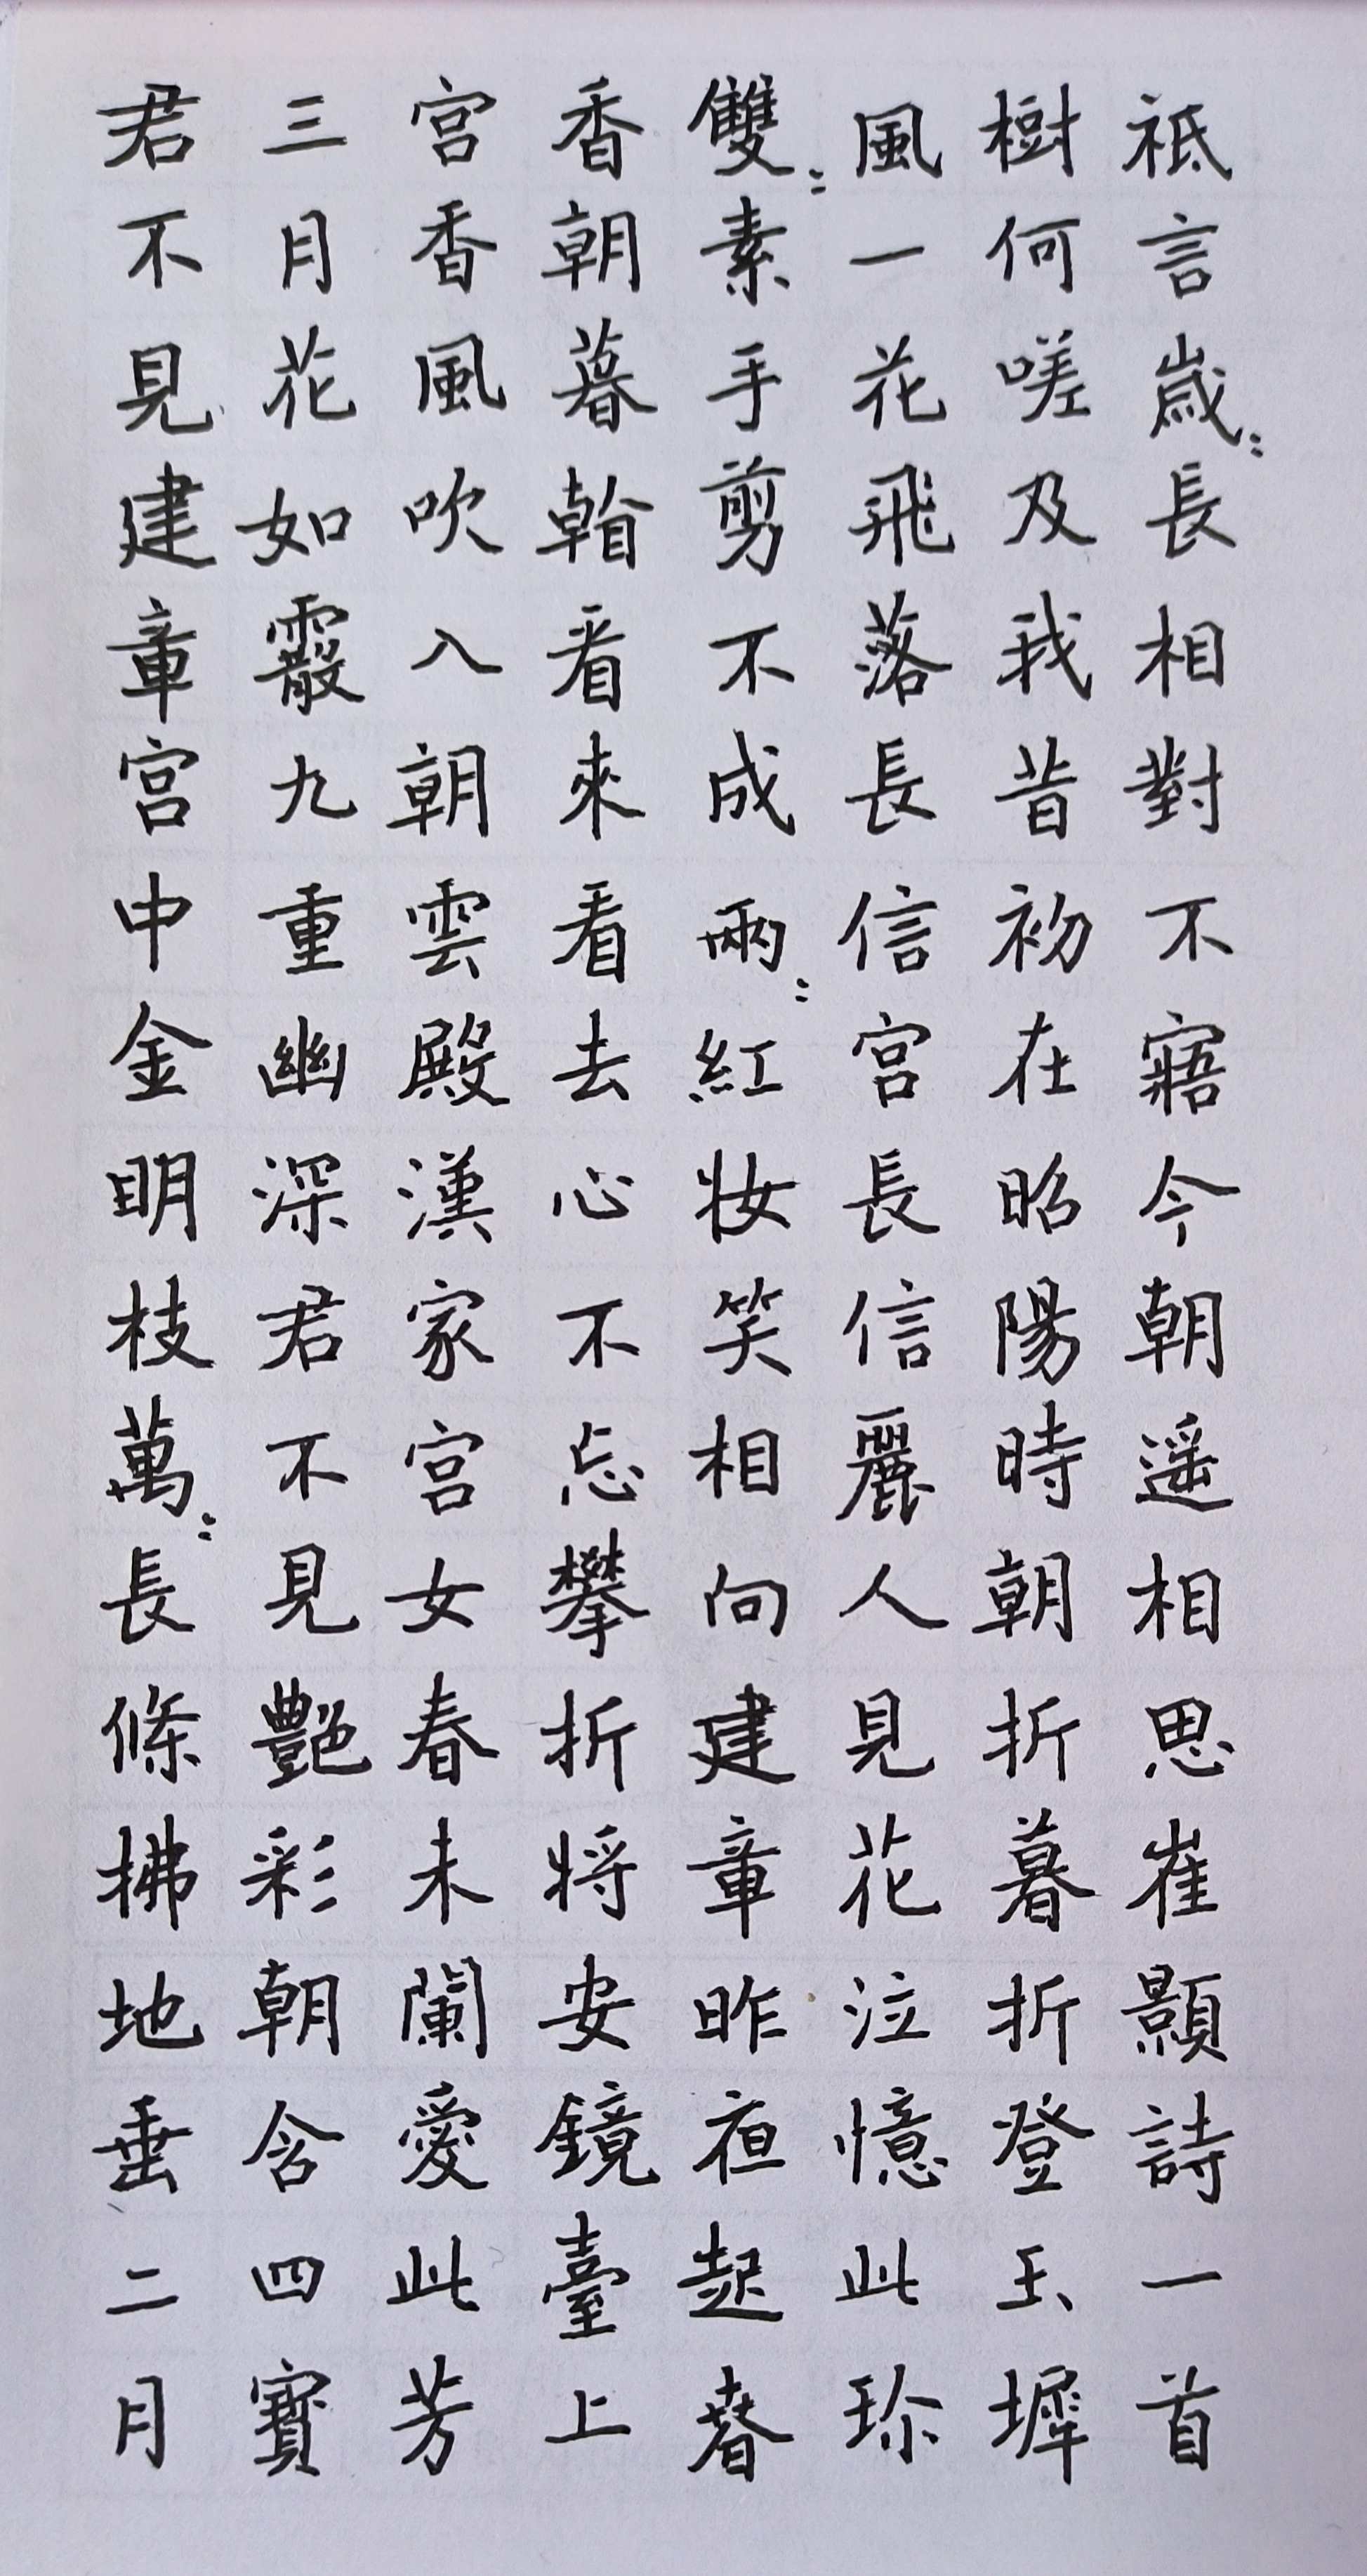 君不見建章宮中金明枝萬:長條拂地垂二月
三月花如霰九重幽深君不見艷彩朝含四寶
宮香風吹入朝雲殿漢家宮女春未闌愛此芳
香朝暮看看來看去心不忘攀折將安鏡臺上
雙:素手剪不成兩:紅妝笑相向建章昨夜起春
風一花飛落長信宮長信麗人見花泣憶此珍
樹何嗟及我昔初在昭陽時朝折暮折登玉墀
祗言歲:長相對不寤今朝遥相思崔顥詩一首